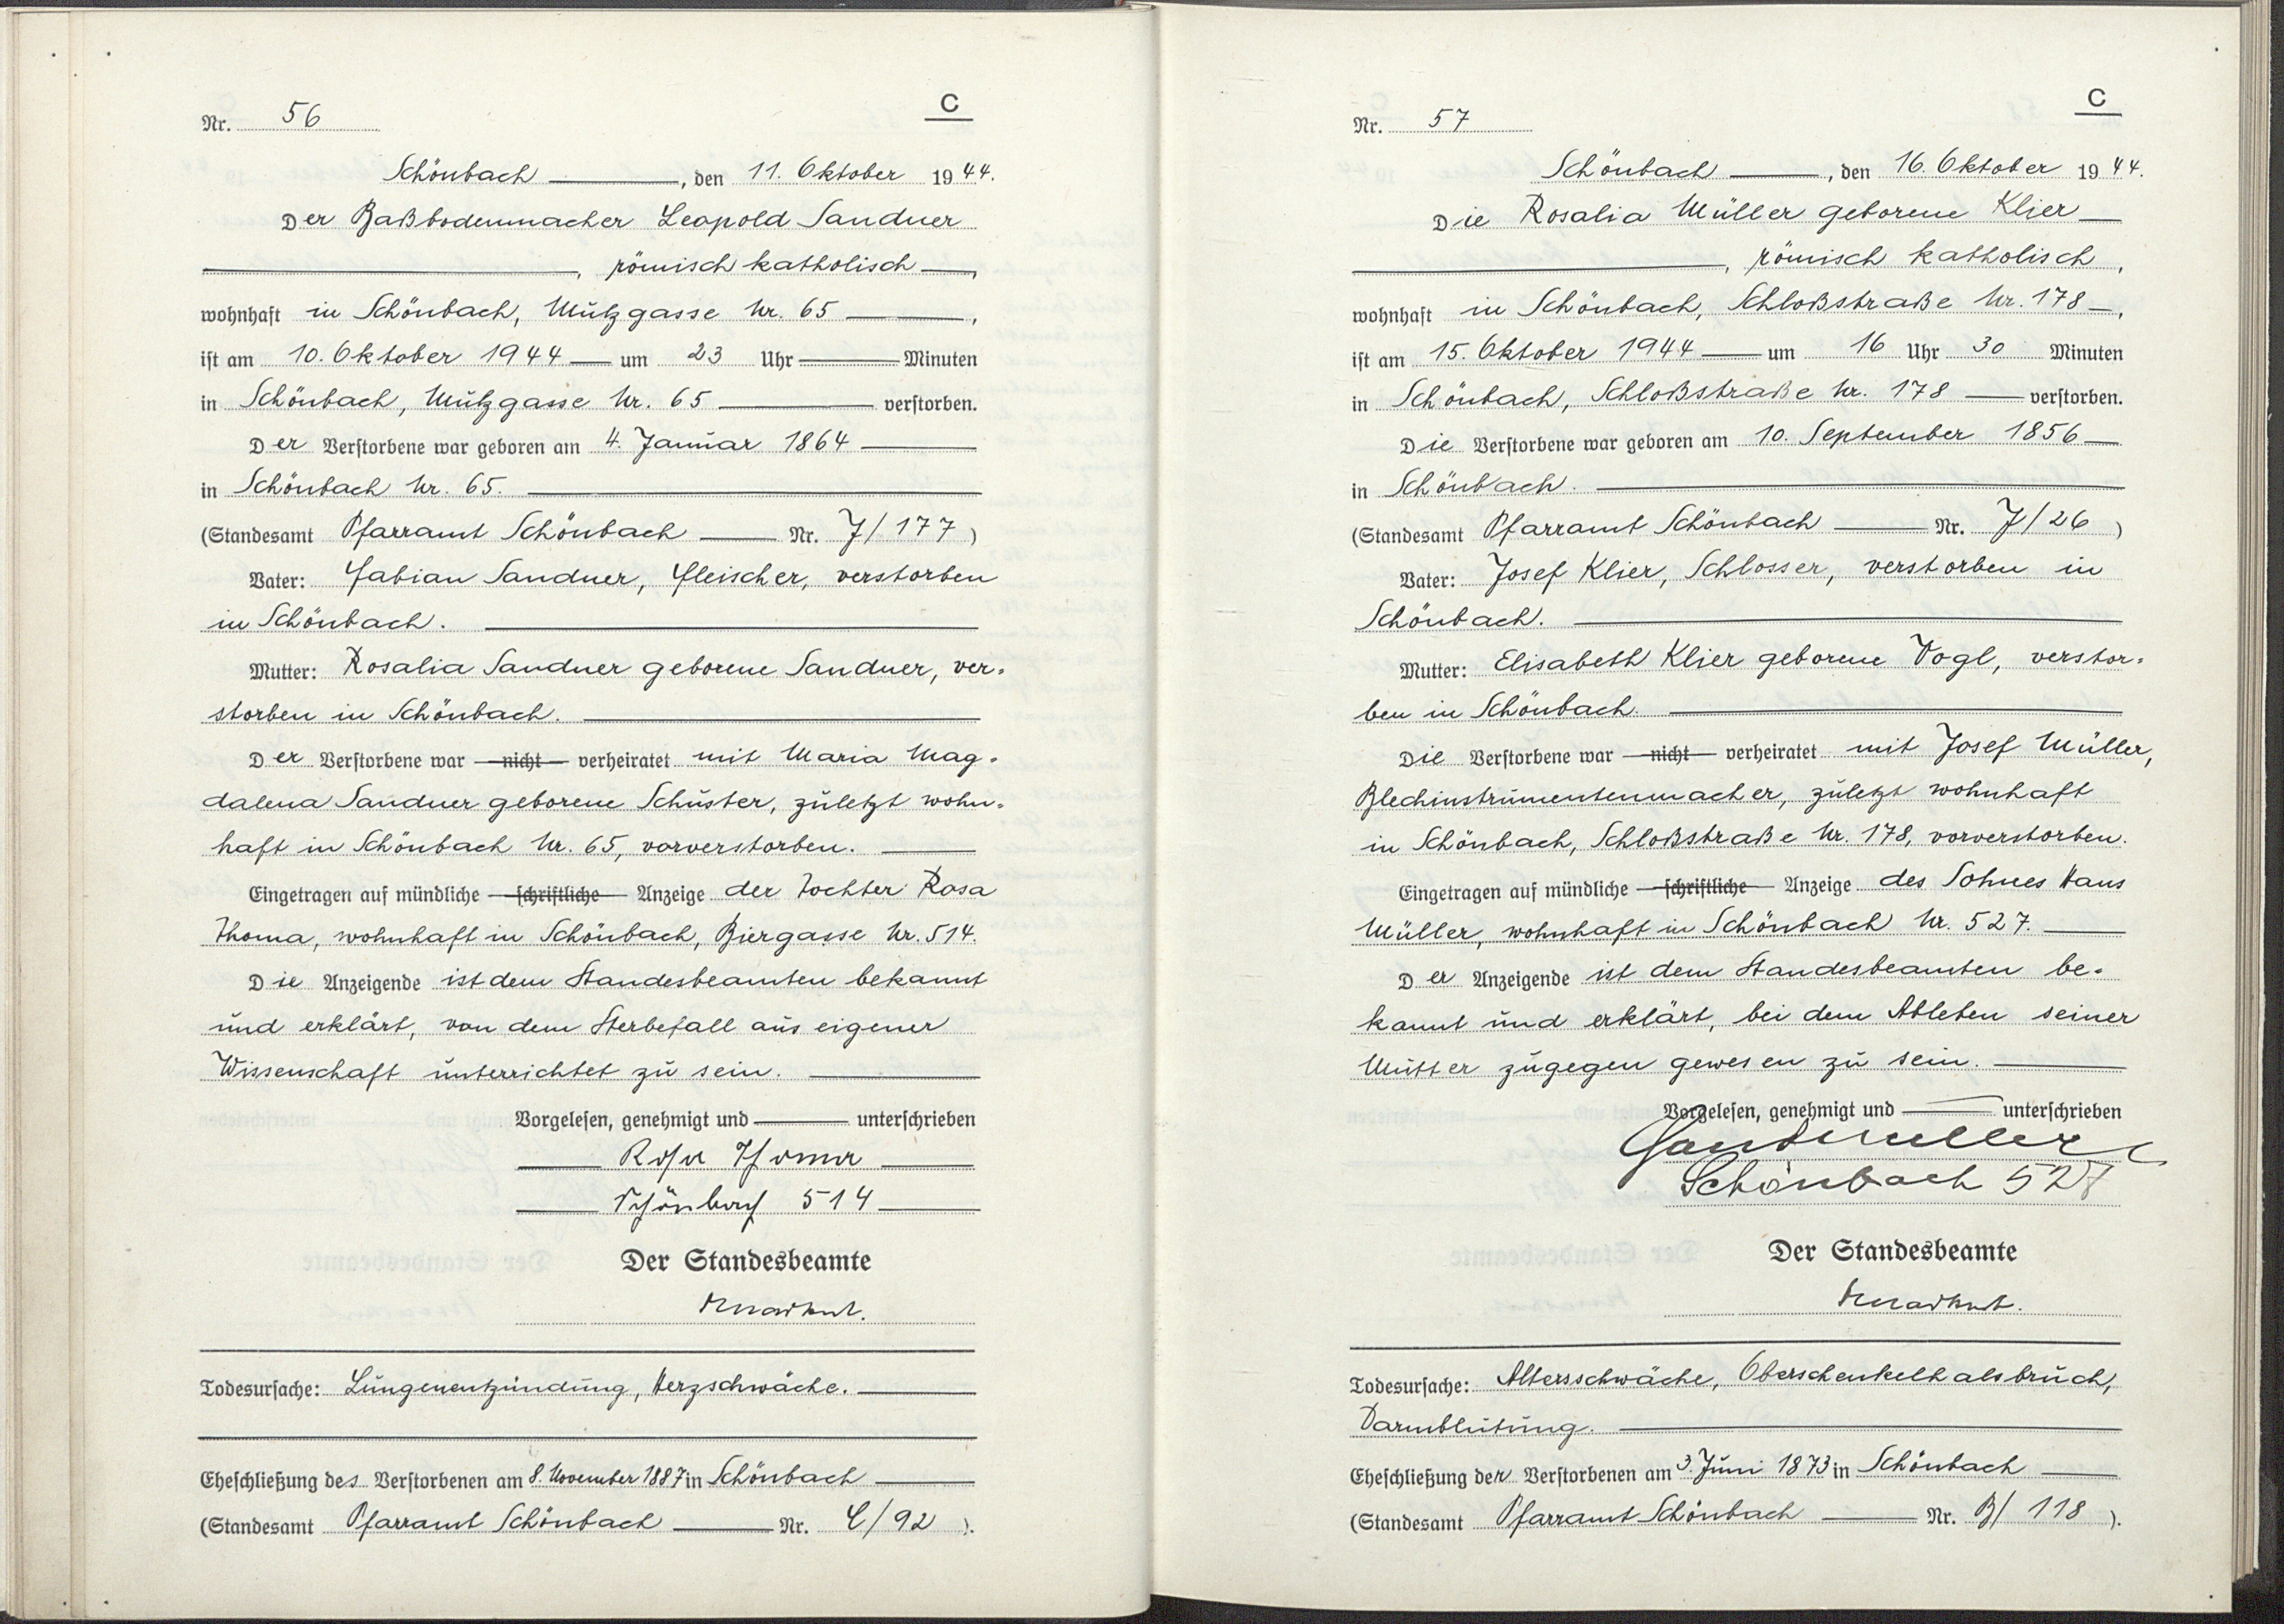 Nr. 56
C
Schönbach, den 11. Oktober 1944.
Der Baßbodenmacher Leopold Sandner
, römisch katholisch,
wohnhaft in Schönbach, Mützgasse Nr. 65,
ist am 10. Oktober 1944 um 23 Uhr Minuten
in Schönbach, Mützgasse Nr. 65 verstorben.
Der Verstorbene war geboren am 4. Januar 1864
in Schönbach Nr. 65.
(Standesamt Pfarramt Schönbach Nr. J/177)
Vater: Fabian Sandner, Fleischer, verstorben
in Schönbach.
Mutter: Rosalia Sandner geborene Sandner, ver-
storben in Schönbach.
Der Verstorbene war nicht verheiratet mit Maria Mag-
dalena Sandner geborene Schuster, zuletzt wohn-
haft in Schönbach Nr. 65, vorverstorben.
Eingetragen auf mündliche schriftliche Anzeige der Tochter Rosa
Thoma, wohnhaft in Schönbach, Biergasse Nr. 514.
Die Anzeigende ist dem Standesbeamten bekannt
und erklärt, von dem Sterbefall aus eigener
Wissenschaft unterrichtet zu sein.
Vorgelesen, genehmigt und unterschrieben
Rosa Thoma
Schönbach 514
Der Standesbeamte
Todesursache: Lungenentzündung, Herzschwäche.
Eheschließung des Verstorbenen am 8. November 1887 in Schönbach
(Standesamt Pfarramt Schönbach Nr. C/92).
Nr. 57
C
Schönbach, den 16. Oktober 1944.
Die Rosalia Müller geborene Klier
, römisch katholisch,
wohnhaft in Schönbach, Schloßstraße Nr. 178,
ist am 15. Oktober 1944 um 16 Uhr 30 Minuten
in Schönbach, Schloßstraße Nr. 178 verstorben.
Die Verstorbene war geboren am 10. September 1856
in Schönbach.
(Standesamt Pfarramt Schönbach Nr. J/26)
Vater: Josef Klier, Schlosser, verstorben in
Schönbach.
Mutter: Elisabeth Klier geborene Vogl, verstor-
ben in Schönbach.
Die Verstorbene war nicht verheiratet mit Josef Müller,
Blechinstrumentenmacher, zuletzt wohnhaft
in Schönbach, Schloßstraße Nr. 178, vorverstorben.
Eingetragen auf mündliche schriftliche Anzeige des Sohnes Hans
Müller, wohnhaft in Schönbach Nr. 527.
Der Anzeigende ist dem Standesbeamten be-
kannt und erklärt, bei dem Ableben seiner
Mutter zugegen gewesen zu sein.
Vorgelesen, genehmigt und unterschrieben
Schönbach 527
Der Standesbeamte
Todesursache: Altersschwäche, Oberschenkelhalsbruch,
Darmblutung.
Eheschließung der Verstorbenen am 3. Juni 1873 in Schönbach
(Standesamt Pfarramt Schönbach Nr. B/118).